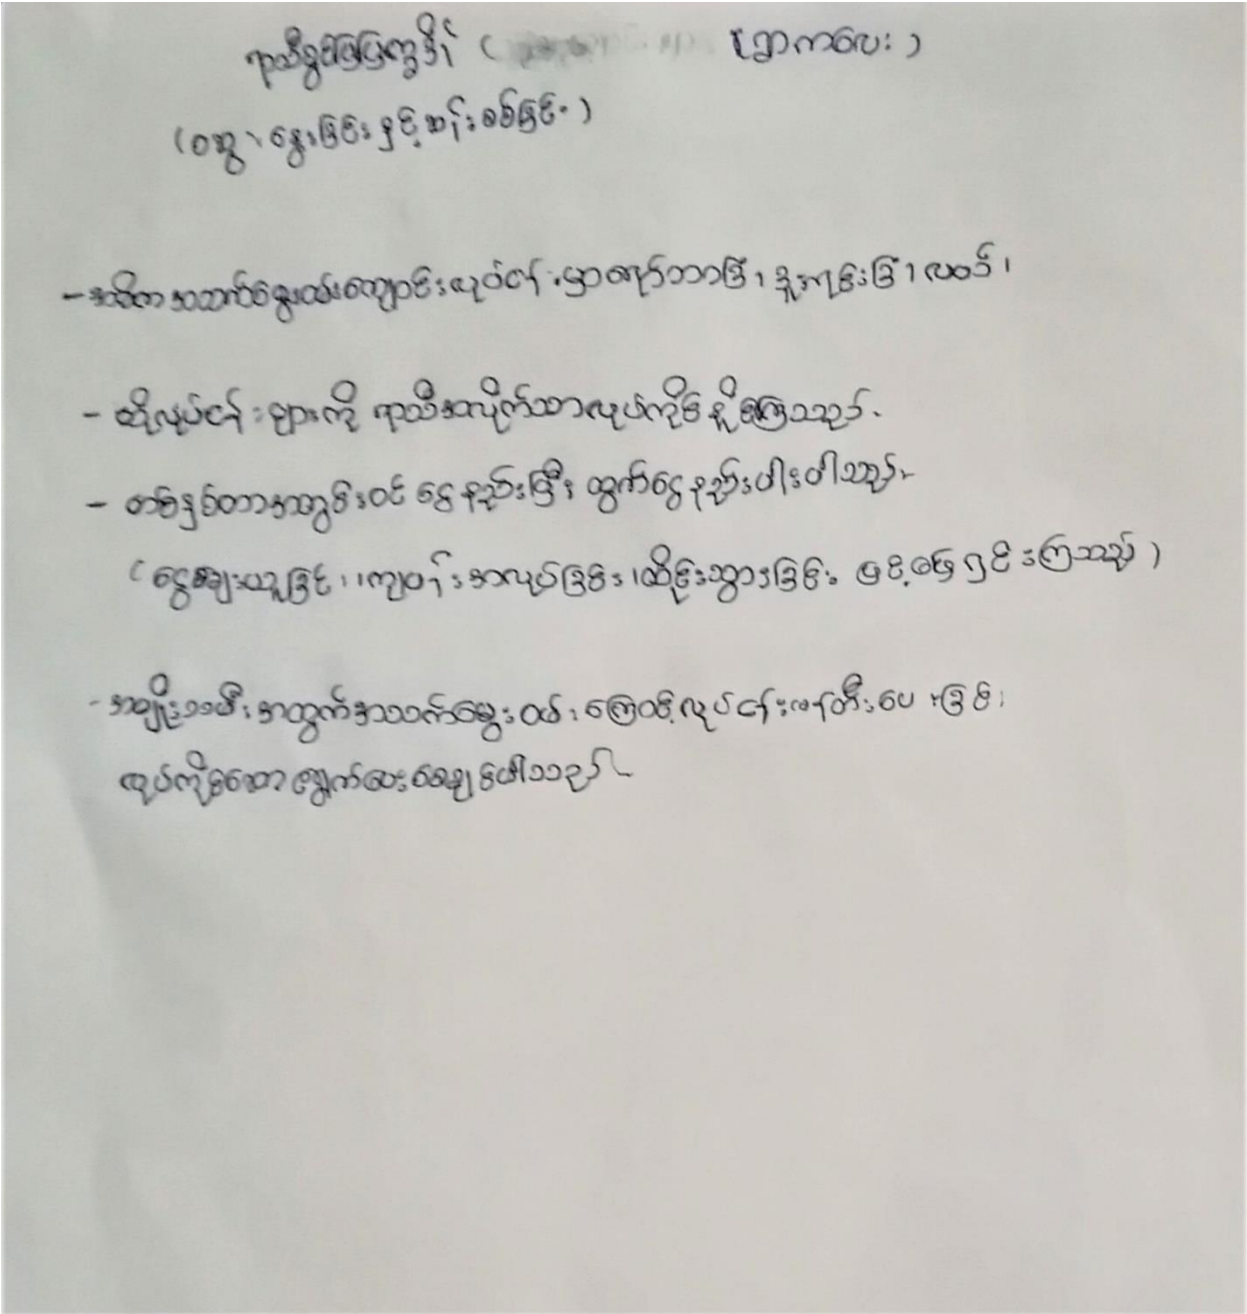 ရာသီခွင်ပြပြက္ခဒိန် ( (ရွာကလေး)
(ဝေဆွ၊ နွေးခြင်း နှင့် ဆန်းစစ်ခြင်း)
- အဓိက အသက်မွေးဝမ်းကျောင်း လုပ်ငန်းမှာ ရော်ဘာခြံ၊ ဒူးရင်းခြံ၊ လယ်၊
- ထိုလုပ်ငန်းများကို ရာသီအလိုက်သာ လုပ်ကိုင်နိုင်ကြသည်။
- တစ်နှစ်တာအတွင်း ဝင်ငွေနည်းပြီး ထွက်ငွေနည်းပါးပါသည်။
(ငွေချေးယူခြင်း၊ ကျပန်းအလုပ်ခြင်း၊ ထိုင်းသွားခြင်း ဖြင့် ဖြေရှင်းကြသည်)
- အမျိုးသမီးအတွက် အသက်မွေးဝမ်းကြောင့် လုပ်ငန်းဖန်တီးပေးခြင်း
လုပ်ကိုင်သော ရွှေက်ဆေးစေချင်ပါသည်။